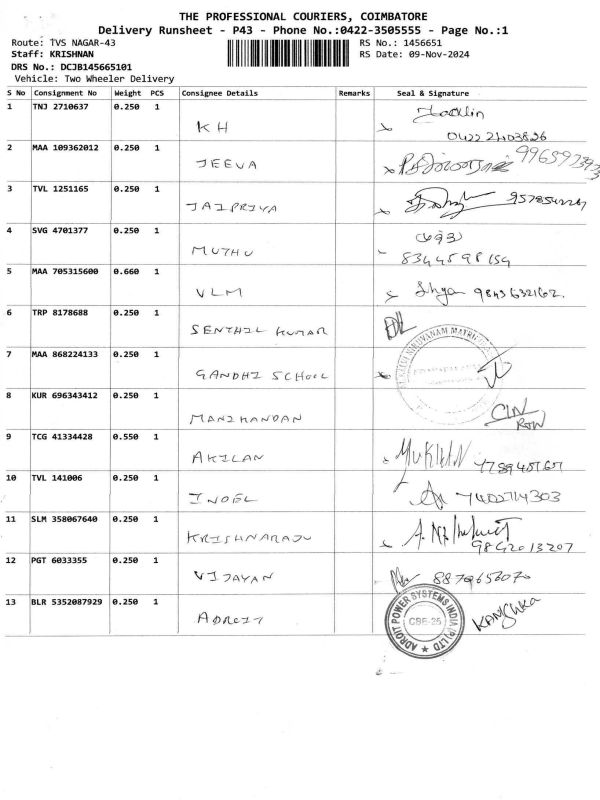 THE PROFESSIONAL COURIERS, COIMBATORE
Delivery Runsheet - P43 - Phone No.:0422-3505555 - Page No.:1
Route: TVS NAGAR-43 RS No.: 1456651
Staff: KRISHNAN RS Date: 09-Nov-2024
DRS No.: DCJB145665101
Vehicle: Two Wheeler Delivery
S No Consignment No Weight PCS Consignee Details Remarks Seal & Signature
1 TNJ 2710637 0.250 1
KH 0422 2403826
2 MAA 109362012 0.250 1
JEEVA
3 TVL 1251165 0.250 1
JAIPRIYA
4 SVG 4701377 0.250 1
MUTHU 8344598154
5 MAA 705315600 0.660 1
VLM 9843632162.
6 TRP 8178688 0.250 1
SENTHIL KUMAR
7 MAA 868224133 0.250 1
GANDHI SCHOOL
8 KUR 696343412 0.250 1
MANIKANDAN
9 TCG 41334428 0.550 1
AKILAN
10 TVL 141006 0.250 1
INOEL
11 SLM 358067640 0.250 1
KRISHNARAJU 9842013207
12 PGT 6033355 0.250 1
VIJAYAN
13 BLR 5352087929 0.250 1
ADROIT
ADROIT POWER SYSTEMS INDIA (P) LTD
CBE-25